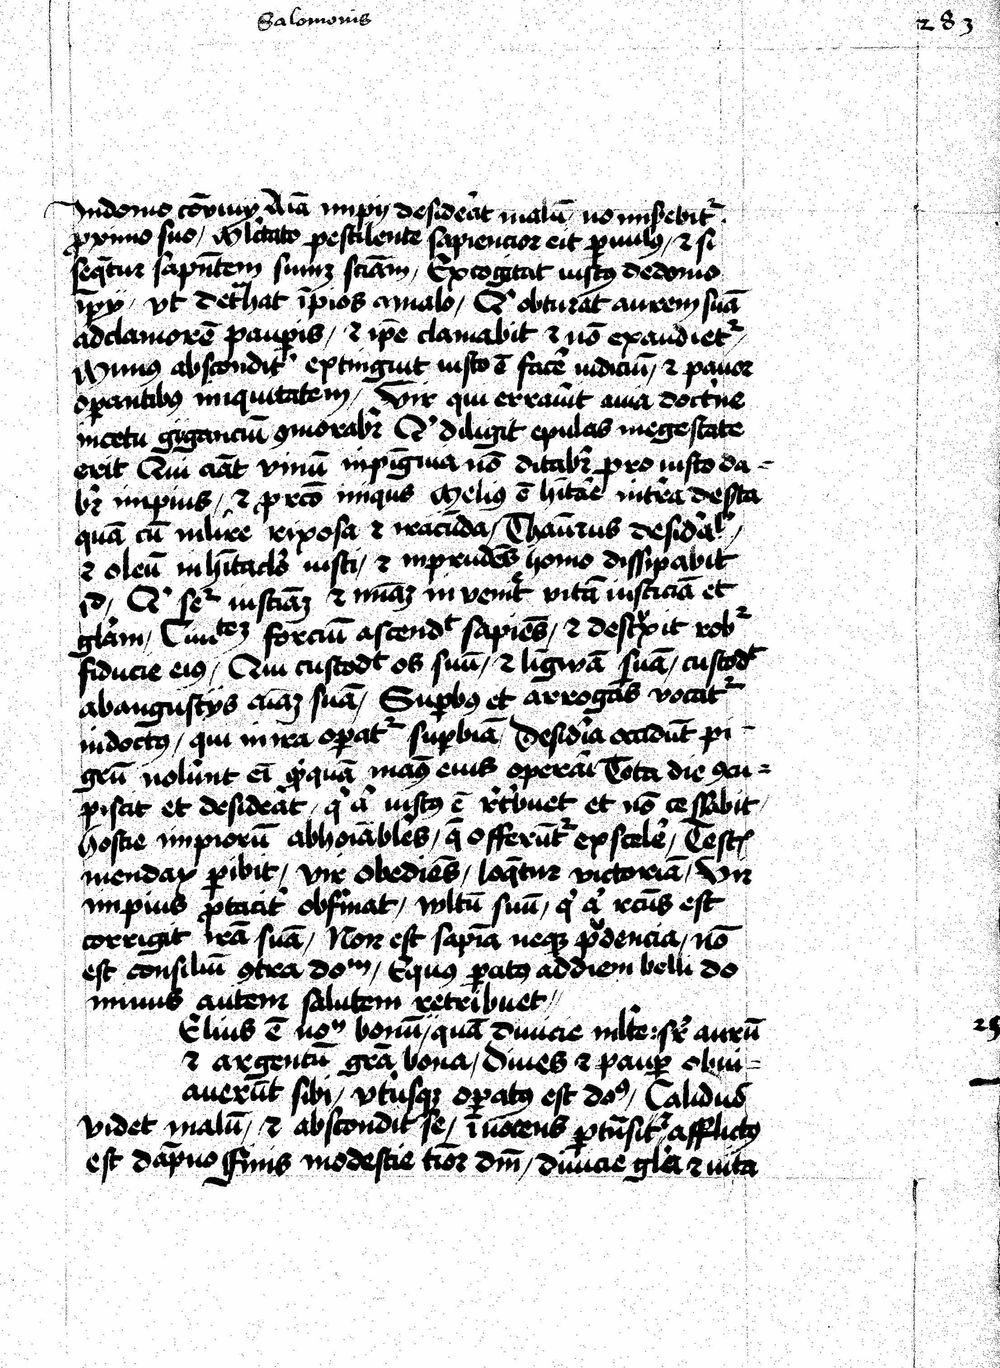 Salomonis 283
Indomo cōmuni Aīa impij desiderat malū no miserebitr
proximo suo / Mulctato pestilente sapiencior erit parvulus / ⁊ si
sequatur sapientem sumet sciam / Excogitat iustus dedomo
impij / ut detrahat īpios amalo / Qui obturat aurem suā
adclamorē pauperis / ⁊ ipse clamabit ⁊ nō exaudietr /
Munus absconditū extinguit iusto ē facere iudiciū / ⁊ pavor
operantibus iniquitatem / Vir qui erraverit avia doctrine
incetu giganciū ꝯmorabitur Qui diligit epulas inegestate
erit Qui amat vinū ⁊ pinguia nō ditabitur pro iusto da =
bitur impius / ⁊ pro rectis iniqus Melius ē hitare interra deserta
quā cū muliere rixosa ⁊ iracūda / Thaurus desiderabilis /
⁊ oleū inhitaculo iusti / ⁊ inprudēs homo dissipabit
id / Qui sequitur iusticiam ⁊ miam inveniet vitā iusticiā et
glām / Civitatem forciū ascendit sapiēs / ⁊ destruxit robur
fiducie eius / Qui custodit os suū / ⁊ ligwā suā / custodit
abangustijs aiam suā / Superbus et arrogās vocatr
indoctus / qui inira operatr superbiā / Desideria occidūt pi -
grū noluerunt eī quicquā manus eius operari Tota die ꝯcu =
piscit et desiderat / qui aūt iustus ē retribuet et nō cessabit /
hostie impiorū abhoiābles / que offerūtr exscelere / Testis
mendax peribit / vir obediēs / loquetur victoriā / Vir
impius procaciter obfirmat / vultū suū / qui aūt rectus est
corrigit viā suā / Non est sapia neque prudencia / nō
est consiliū ꝯtra dom / Equus paratus addiem belli do
minus autem salutem retribuet //
Elius ē nomen bonū / quā divicie multe : super aurū
⁊ argentū grā bona / Dives ⁊ pauper obvi =
averūt sibi / utriusque operatus est dos / Calidus
videt malū / ⁊ abscondit se / īnocens pertransitr afflictus
est dāpno Finis modestie timor dni / divicie glia ⁊ vita